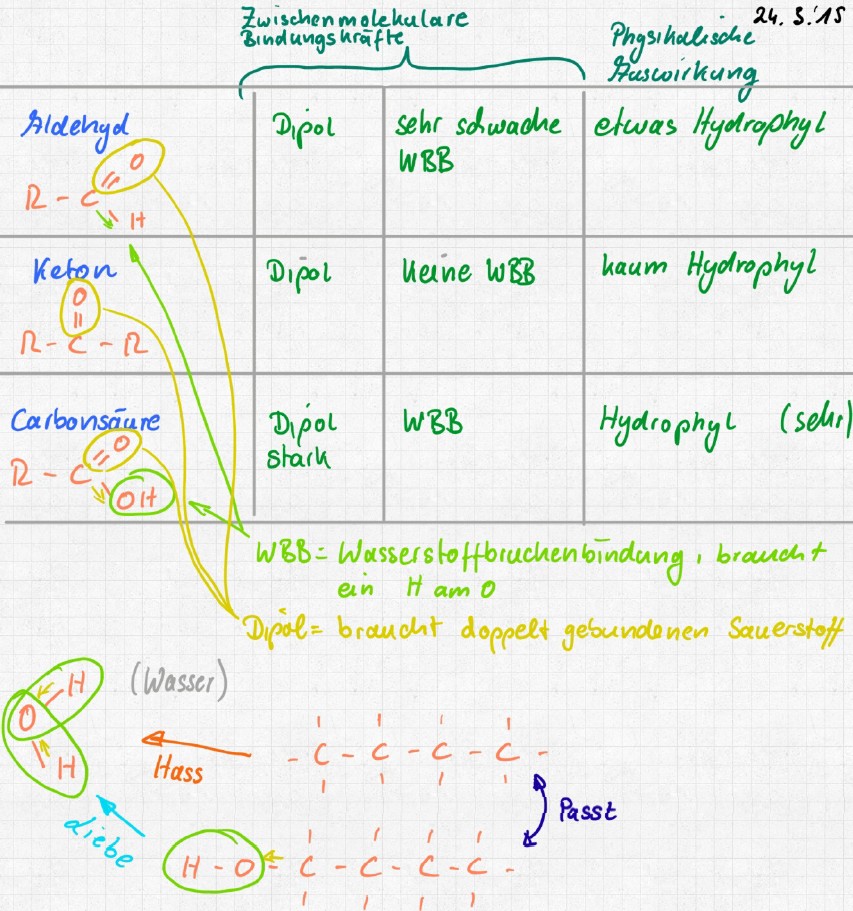 24. 3.'15
Zwischenmolekulare
Bindungskräfte
Physikalische
Auswirkung
Aldehyd
Dipol
sehr schwache
WBB
etwas Hydrophyl
O
R - C
H
Keton
Dipol
keine WBB
kaum Hydrophyl
O
R - C - R
Carbonsäure
Dipol
stark
WBB
Hydrophyl (sehr)
O
R - C
OH
WBB = Wasserstoffbruckenbindung, braucht
ein H am O
Dipol = braucht doppelt gebundenen Sauerstoff
(Wasser)
H
O
H
Hass
- C - C - C - C -
Passt
Liebe
H - O - C - C - C - C -